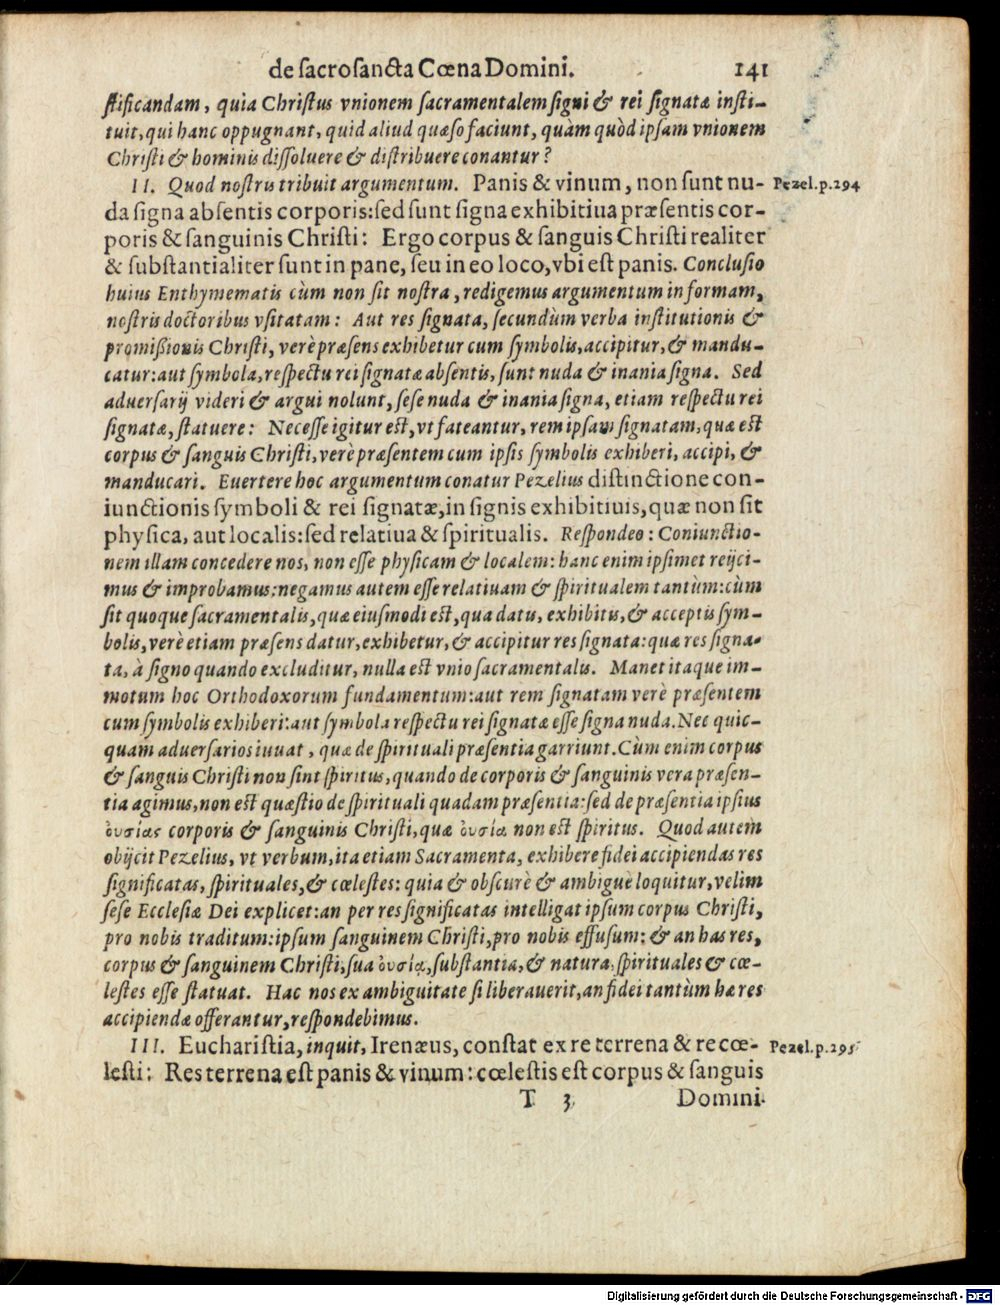 de sacrosancta Cœna Domini. 141
stificandam, quia Christus vnionem sacramentalem signi & rei signatæ insti-
tuit, qui hanc oppugnant, quid aliud quæso faciunt, quàm quòd ipsam vnionem
Christi & hominis dissoluere & distribuere conantur?
II. Quod nostris tribuit argumentum. Panis & vinum, non sunt nu- Pezel.p.294
da signa absentis corporis: sed sunt signa exhibitiua præsentis cor-
poris & sanguinis Christi: Ergo corpus & sanguis Christi realiter
& substantialiter sunt in pane, seu in eo loco, vbi est panis. Conclusio
huius Enthymematis cùm non sit nostra, redigemus argumentum in formam,
nostris doctoribus vsitatam: Aut res signata, secundùm verba institutionis &
promißionis Christi, verè præsens exhibetur cum symbolis, accipitur, & mandu-
catur: aut symbola, respectu rei signatæ absentis, sunt nuda & inania signa. Sed
aduersarij videri & argui nolunt, sese nuda & inania signa, etiam respectu rei
signatæ, statuere: Necesse igitur est, vt fateantur, rem ipsam signatam, quæ est
corpus & sanguis Christi, verè præsentem cum ipsis symbolis exhiberi, accipi, &
manducari. Euertere hoc argumentum conatur Pezelius distinctione con-
iunctionis symboli & rei signatæ, in signis exhibitiuis, quæ non sit
physica, aut localis: sed relatiua & spiritualis. Respondeo: Coniunctio-
nem illam concedere nos, non esse physicam & localem: hanc enim ipsimet reijci-
mus & improbamus: negamus autem esse relatiuam & spiritualem tantùm: cùm
sit quoque sacramentalis, quæ eiusmodi est, qua datis, exhibitis, & acceptis sym-
bolis, verè etiam præsens datur, exhibetur, & accipitur res signata: quæ res signa-
ta, à signo quando excluditur, nulla est vnio sacramentalis. Manet itaque im-
motum hoc Orthodoxorum fundamentum: aut rem signatam verè præsentem
cum symbolis exhiberi: aut symbola respectu rei signatæ esse signa nuda. Nec quic-
quam aduersarios iuuat, quæ de spirituali præsentia garriunt. Cùm enim corpus
& sanguis Christi non sint spiritus, quando de corporis & sanguinis vera præsen-
tia agimus, non est quæstio de spirituali quadam præsentia: sed de præsentia ipsius
ὀυσίας corporis & sanguinis Christi, quæ ὀυσία non est spiritus. Quod autem
obijcit Pezelius, vt verbum, ita etiam Sacramenta, exhibere fidei accipiendas res
significatas, spirituales, & cœlestes: quia & obscurè & ambiguè loquitur, velim
sese Ecclesiæ Dei explicet: an per res significatas intelligat ipsum corpus Christi,
pro nobis traditum: ipsum sanguinem Christi, pro nobis effusum: & an has res,
corpus & sanguinem Christi, sua ὀυσίᾳ, substantia, & natura, spirituales & cœ-
lestes esse statuat. Hac nos ex ambiguitate si liberauerit, an fidei tantùm hæ res
accipiendæ offerantur, respondebimus.
III. Eucharistia, inquit, Irenæus, constat ex re terrena & re cœ- Pezel.p.295
lesti: Res terrena est panis & vinum: cœlestis est corpus & sanguis
T 3 Domini
Digitalisierung gefördert durch die Deutsche Forschungsgemeinschaft - DFG